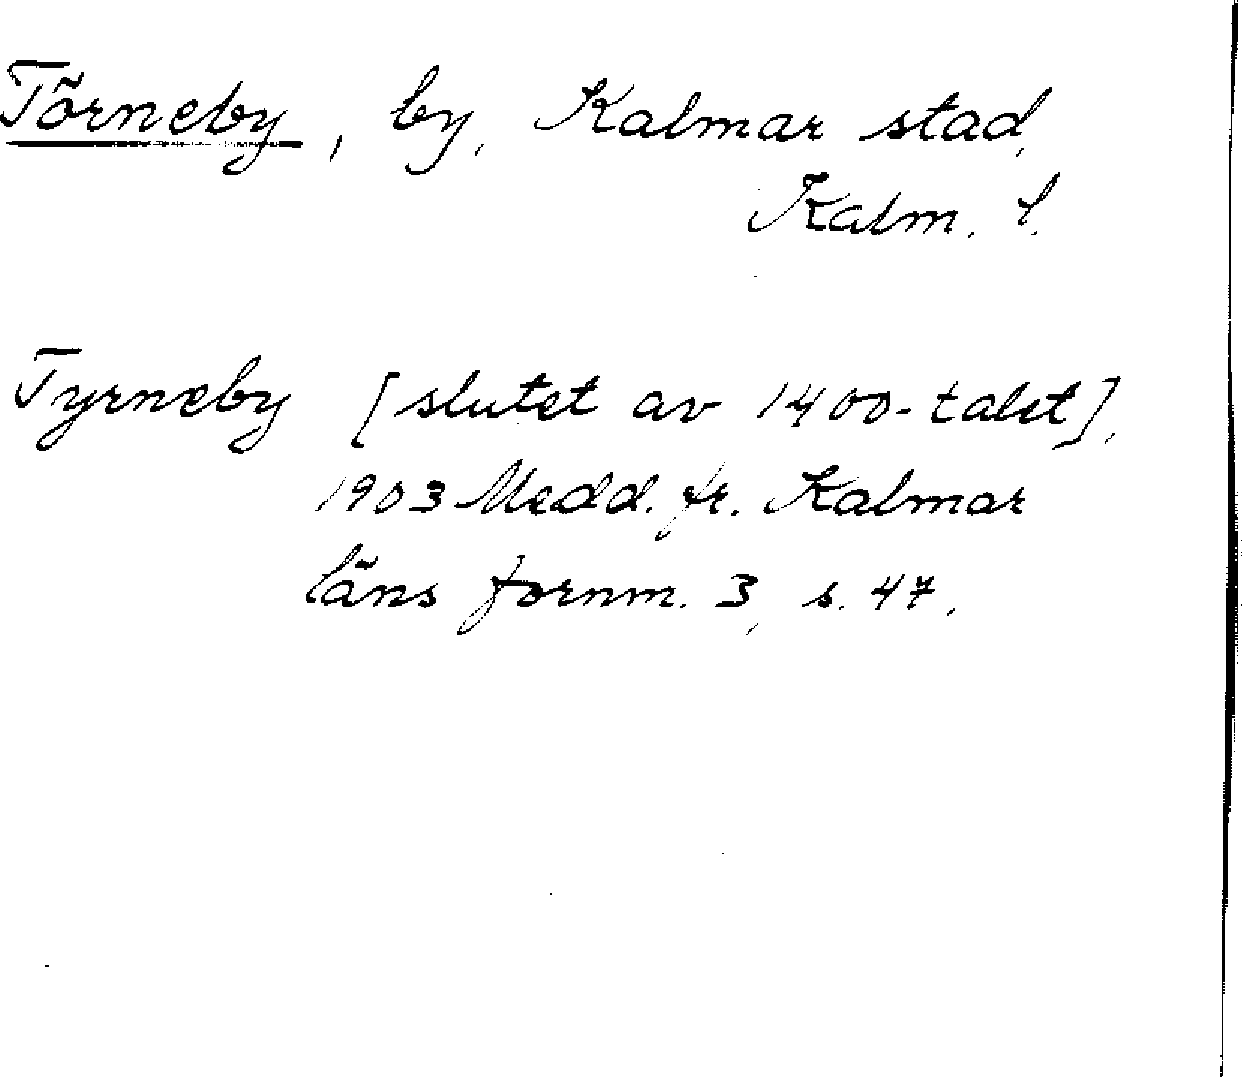 Törneby, by, Kalmar stad,
Kalm. l.
Tyrneby [slutet av 1400-talet],
1903 Medd. fr. Kalmar
läns fornm. 3, s. 47.